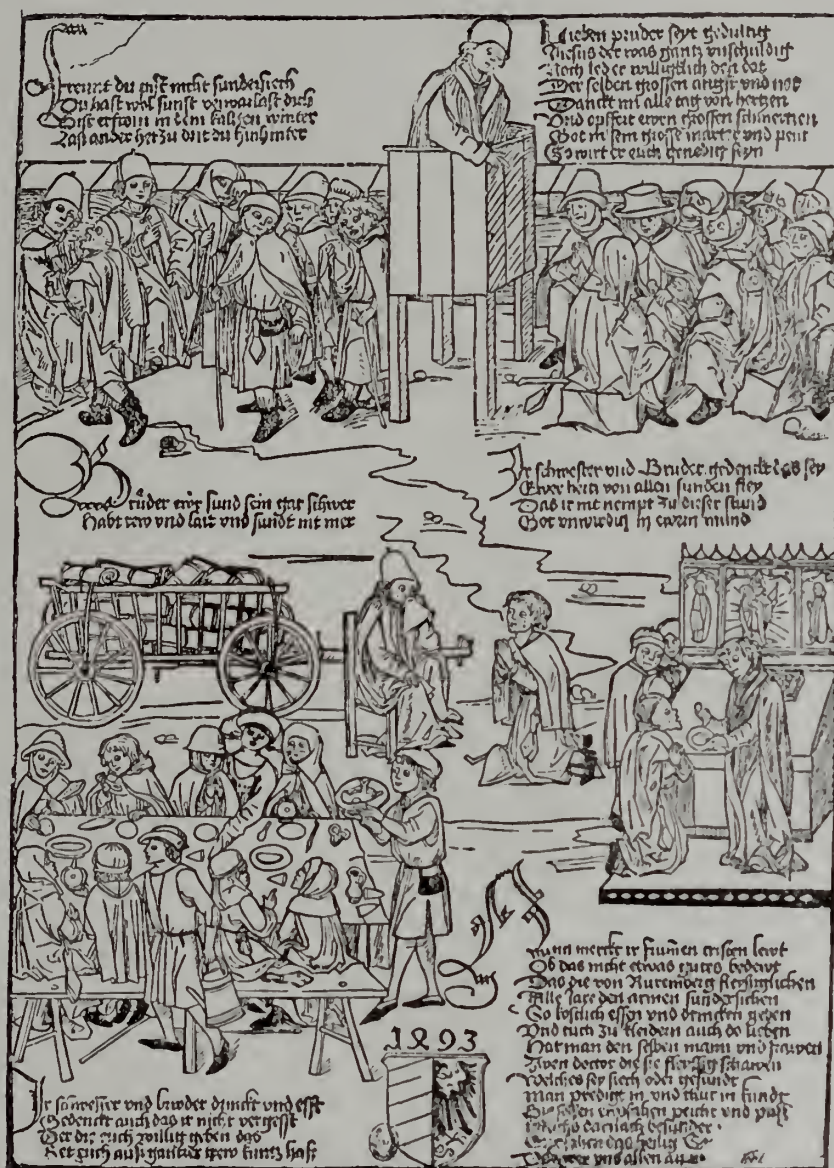 Freunt du pist nicht sundersiech
Du hast wol sunst verwarlast dich
Pist erfrorn in dem kalten winter
Last ander herzu drit du hinhinter
lieben pruder seyt gedultig
Jhesus der was gantz vnschuldig
Noch led er williglich den dot
Der selben grossen angst vnd not
Danckt im alle tag von hertzen
Vnd opffert ewrn grossen schmertzen
Got in sein grosse marter vnd pein
So wirt er euch genedig seyn
pruder ewr sund sein gar schwer
Habt rew vnd laid vnd sundt nit mer
Ir schwester vnd Bruder gedenckt das sey
Ewer hertz von allen sunden frey
Das ir nit nempt zu dieser stund
Got vnwirdig in ewrn mund
1493
Ir schwester vnd bruder drinckt vnd esst
Gedenckt auch das ir nicht vergesst
Der die euch willig geben das
Nun merckt ir frumen cristen lewt
Ob das nicht etwas guts bedewt
Das die von Nuremberg fleyssiglichen
Alle jare den armen sundersichen
So kostlich essen vnd drincken geben
Vnd tuch zu kleidern auch do neben
Hat man den selben mann vnd frawen
doctor die sie fleyssig schawen
Welches sey siech oder gesundt
Man predigt in vnd thut in kundt
Sie empfahen peicht vnd
vns allen